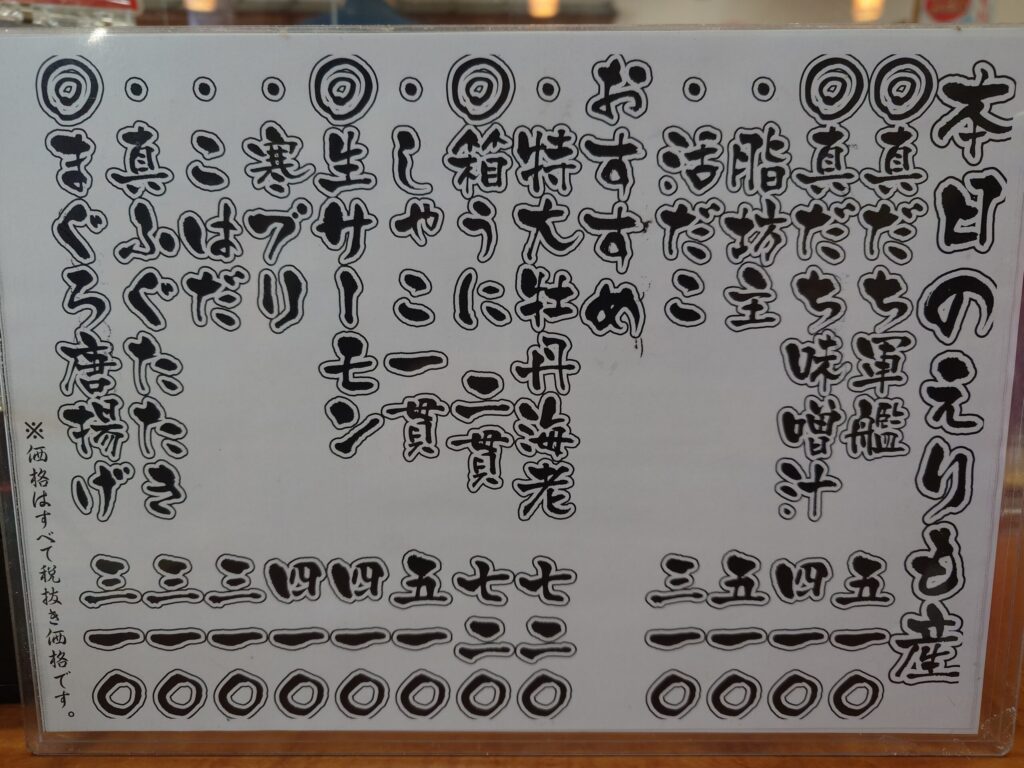 本日のえりも産
◎真だち軍艦 五一〇
◎真だち味噌汁 四一〇
・脂坊主 五一〇
・活だこ 三一〇
おすすめ
・特大牡丹海老 七二〇
◎箱うに 二貫 七二〇
・しゃこ 一貫 五一〇
◎生サーモン 四一〇
・寒ブリ 四一〇
・こはだ 三一〇
・真ふぐたたき 三一〇
◎まぐろ唐揚げ 三一〇
※価格はすべて税抜き価格です。